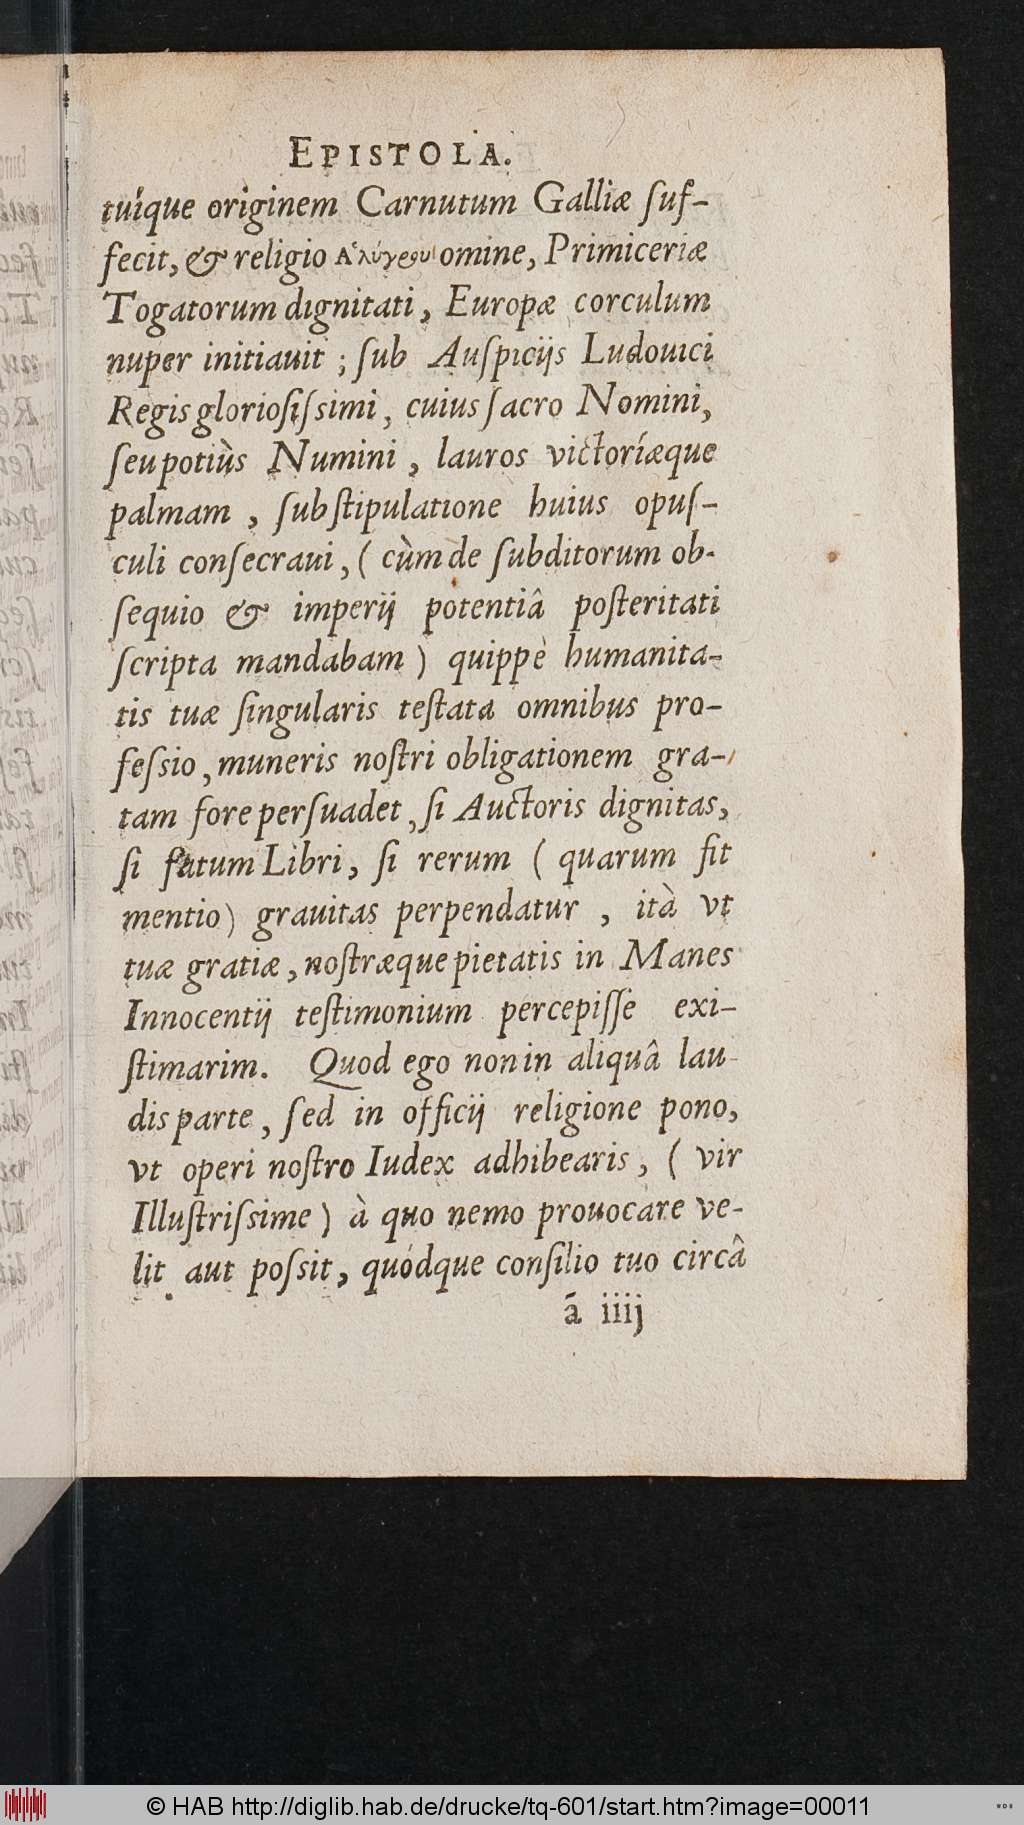 EPISTOLA.
tuíque originem Carnutum Galliæ ſuf-
fecit, & religio omine, Primiceriæ
Togatorum dignitati, Europæ corculum
nuper initiauit ; ſub Auſpicijs Ludouici
Regis glorioſiſsimi, cuius ſacro Nomini,
ſeu potiùs Numini, lauros victoríæque
palmam, ſub ſtipulatione huius opuſ-
culi conſecraui, ( cùm de ſubditorum ob-
ſequio & imperij potentiâ poſteritati
ſcripta mandabam ) quippè humanita-
tis tuæ ſingularis teſtata omnibus pro-
feſsio, muneris noſtri obligationem gra-
tam fore perſuadet, ſi Auctoris dignitas,
ſi fatum Libri, ſi rerum ( quarum fit
mentio ) grauitas perpendatur, ità vt
tuæ gratiæ, noſtræque pietatis in Manes
Innocentij teſtimonium percepiſſe exi-
ſtimarim. Quod ego non in aliquâ lau-
dis parte, ſed in officij religione pono,
vt operi noſtro Iudex adhibearis, ( vir
Illuſtriſsime ) à quo nemo prouocare ve-
lit aut poſsit, quódque conſilio tuo circâ
ã iiij
© HAB http://diglib.hab.de/drucke/tq-601/start.htm?image=00011